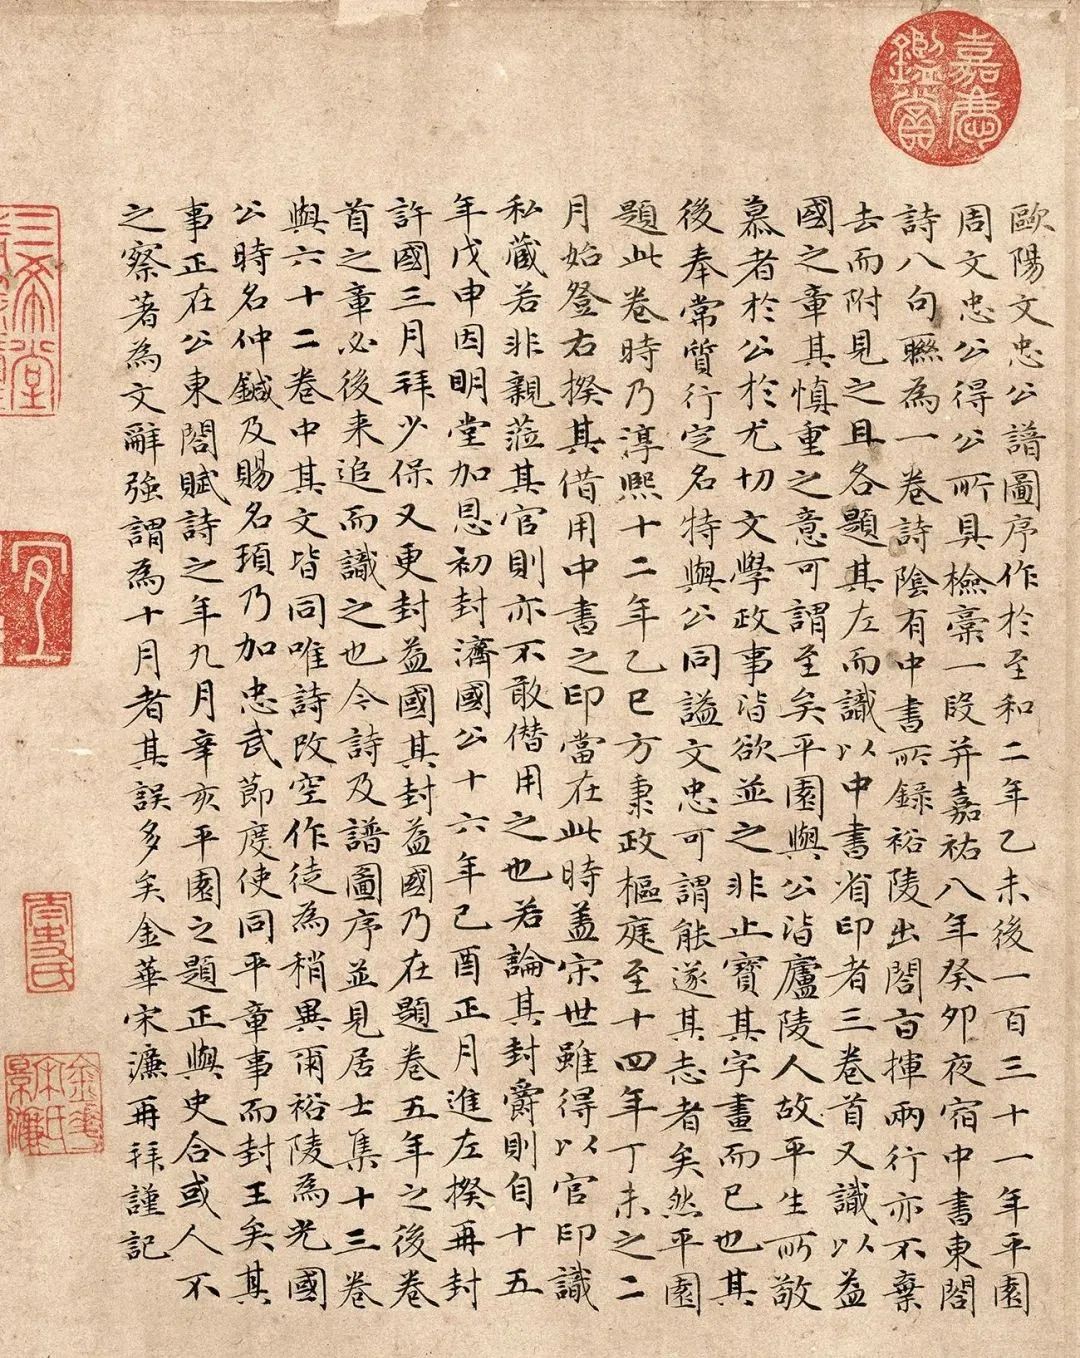 嘉慶鑑賞
歐陽文忠公譜圖序作於至和二年乙未後一百三十一年平園
周文忠公得公所具檢稾一段并嘉祐八年癸卯夜宿中書東閤
詩八句聮為一卷詩陰有中書所錄裕陵出閤旨揮兩行亦不棄
去而附見之且各題其左而識以中書省印者三卷首又識以益
國之章其慎重之意可謂至矣平園與公皆廬陵人故平生所敬
慕者於公於尤切文學政事皆欲並之非止寶其字畫而已也其
後奉常質行定名特與公同謚文忠可謂能遂其志者矣然平園
題此卷時乃淳熙十二年乙巳方秉政樞庭至十四年丁未之二
月始登右揆其借用中書之印當在此時蓋宋世雖得以官印識
私蔵若非親蒞其官則亦不敢僭用之也若論其封爵則自十五
年戊申因明堂加恩初封濟國公十六年己酉正月進左揆再封
許國三月拜少保又更封益國其封益國乃在題卷五年之後卷
首之章必後来追而識之也今詩及譜圖序並見居士集十三卷
與六十二卷中其文皆同唯詩改空作徒為稍異爾裕陵為光國
公時名仲鍼及賜名頊乃加忠武節度使同平章事而封王矣其
事正在公東閤賦詩之年九月辛亥平園之題正與史合或人不
之察著為文辭強謂為十月者其誤多矣金華宋濂再拜謹記
三希堂
金華宋氏景濂